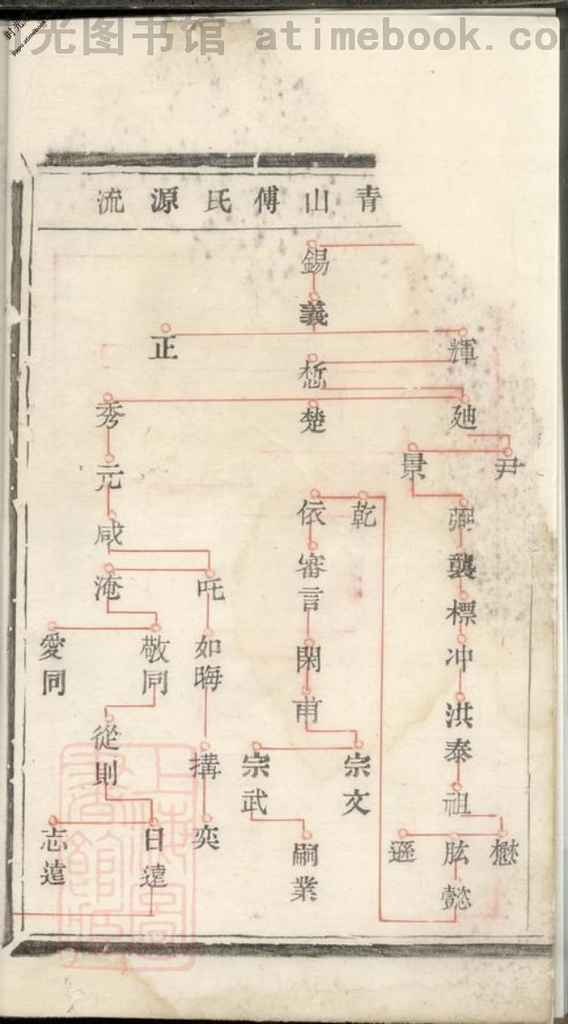 光图书馆 atimebook.com
青山傅氏源流
錫
義
輝
正
惁
廸
楚
秀
尹
景
元
乾
依
咸
襲
審言
吒
淹
標
冲
閑
如晦
敬同
愛同
洪泰
甫
從則
祖
宗文
宗武
搆
懋
肱
遜
嗣業
奕
日遠
志遠
懿